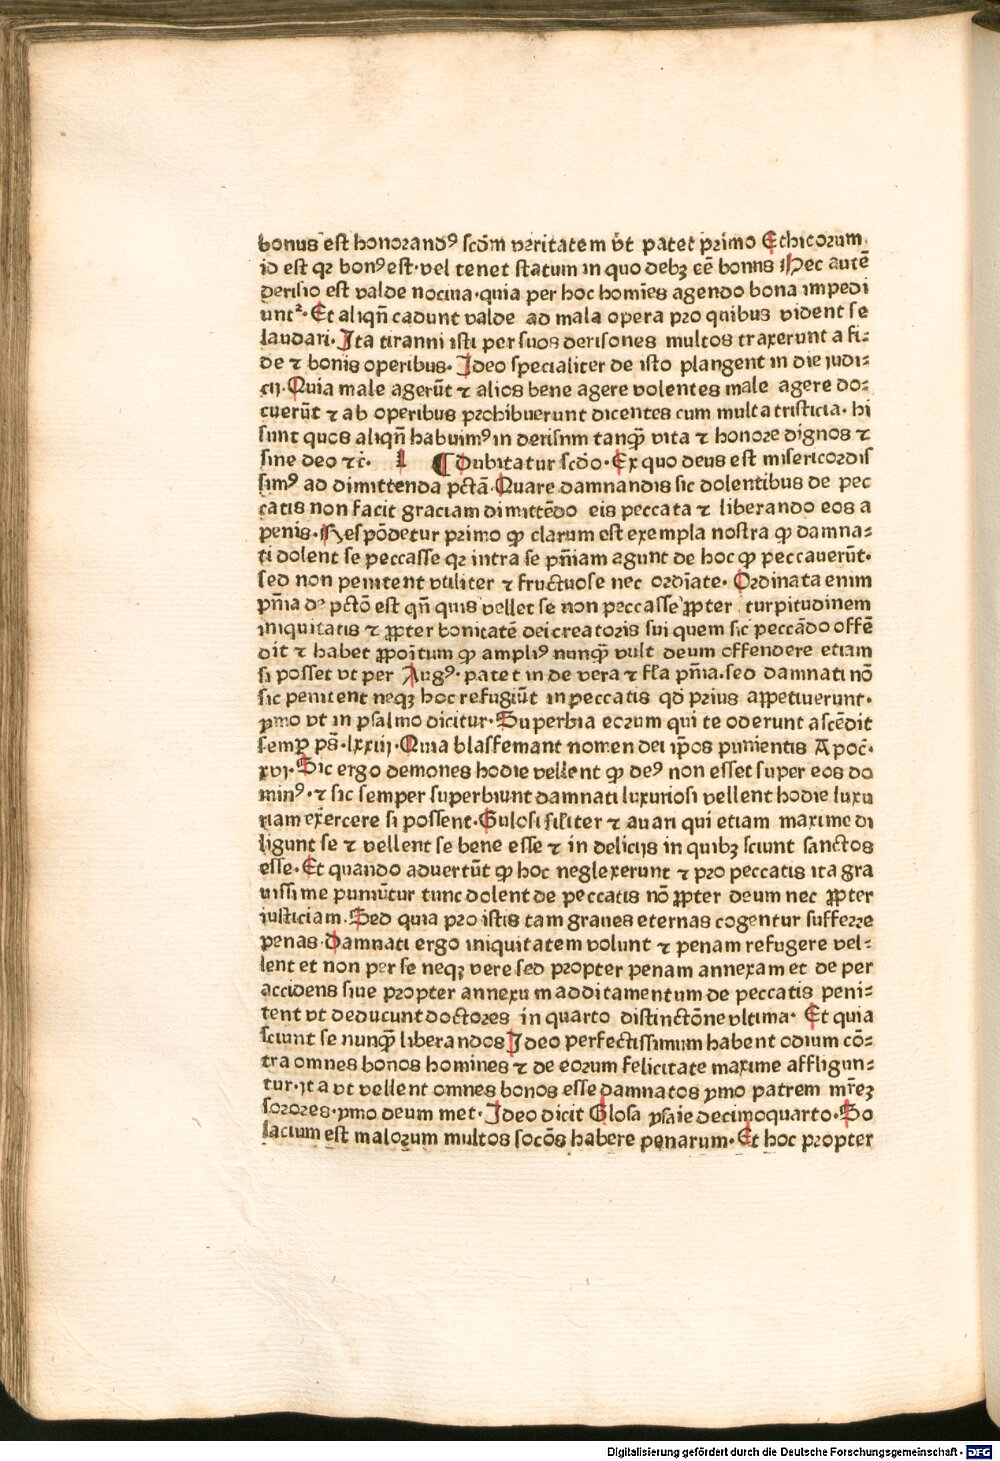 bonus est honorandꝰ scd̄m veritatem vt patet primo Ethicorum
id est qꝛ bonꝰ est·vel tenet statum in quo debꝫ eē bonns Hec autē
derisio est valde nociua·quia per hoc homīes agendo bona impedi
unt᷑·Et aliqn̄ cadunt valde ad mala opera pro quibus vident se
laudari·Ita tiranni isti per suos derisones multos traxerunt a fi⸗
de ⁊ bonis operibus·Ideo specialiter de isto plangent in die iudi⸗
cij·Quia male agerūt ⁊ alios bene agere volentes male agere do⸗
cuerūt ⁊ ab operibus prohibuerunt dicentes cum multa tristicia·hi
sunt quos aliqn̄ habuimꝰ in derisum tanqꝫ̄ vita ⁊ honore dignos ⁊
sine deo ⁊c̄· ¶ Dubitatur scd̄o·Ex quo deus est misericordis
simꝰ ad dimittenda pctā·Quare damnandis sic dolentibus de pec
catis non facit graciam dimittēdo eis peccata ⁊ liberando eos a
penis·Respōdetur primo ꝙ clarum est exempla nostra ꝙ damna⸗
ti dolent se peccasse qꝛ intra se pn̄iam agunt de hoc ꝙ peccauerūt·
sed non penitent vtiliter ⁊ fructuose nec ordīate·Ordinata enim
pn̄ia de pctō est qn̄ quis vellet se non peccasse ꝓpter turpitudinem
iniquitatis ⁊ ꝓpter bonitatē dei creatoris sui quem sic peccādo offē
dit ⁊ habet ꝓpoītum ꝙ ampliꝰ nunqꝫ̄ vult deum offendere etiam
si posset vt per Augꝰ·patet in de vera ⁊ fl̄a pn̄ia·sed damnati nō
sic penitent neqꝫ hoc refugiūt in peccatis qd̄ prius appetiuerunt·
pmo vt in psalmo dicitur·Superbia eorum qui te oderunt ascēdit
semꝑ ps̄·lxxiij·Quia blasfemant nomen dei ip̄os punientis Apoc̄·
xvi·Sic ergo demones hodie vellent ꝙ deꝰ non esset super eos do
minꝰ·⁊ sic semper superbiunt damnati luxuriosi vellent hodie luxu
riam exercere si possent·Gulosi sil̄iter ⁊ auari qui etiam maxime di
ligunt se ⁊ vellent se bene esse ⁊ in delicijs in quibꝫ sciunt sanctos
esse·Et quando aduertūt ꝙ hoc neglexerunt ⁊ pro peccatis ita gra
uissime puniūtur tunc dolent de peccatis nō ꝓpter deum nec ꝓpter
iusticiam·Sed quia pro istis tam graues eternas cogentur sufferre
penas·Damnati ergo iniquitatem volunt ⁊ penam refugere vel⸗
lent et non per se neqꝫ vere sed propter penam annexam et de per
accidens siue propter annexum additamentum de peccatis peni⸗
tent vt deducunt doctores in quarto distinctōne vltima·Et quia
sciunt se nunqꝫ̄ liberandos Ideo perfectissimum habent odium cō⸗
tra omnes bonos homines ⁊ de eorum felicitate maxime affligun⸗
tur·ita vt vellent omnes bonos esse damnatos pmo patrem mr̄eꝫ
sorores·pmo deum met·Ideo dicit Glosa ysaie decimoquarto·So
lacium est malorum multos socōs habere penarum·Et hoc propter
Digitalisierung gefördert durch die Deutsche Forschungsgemeinschaft - DFG